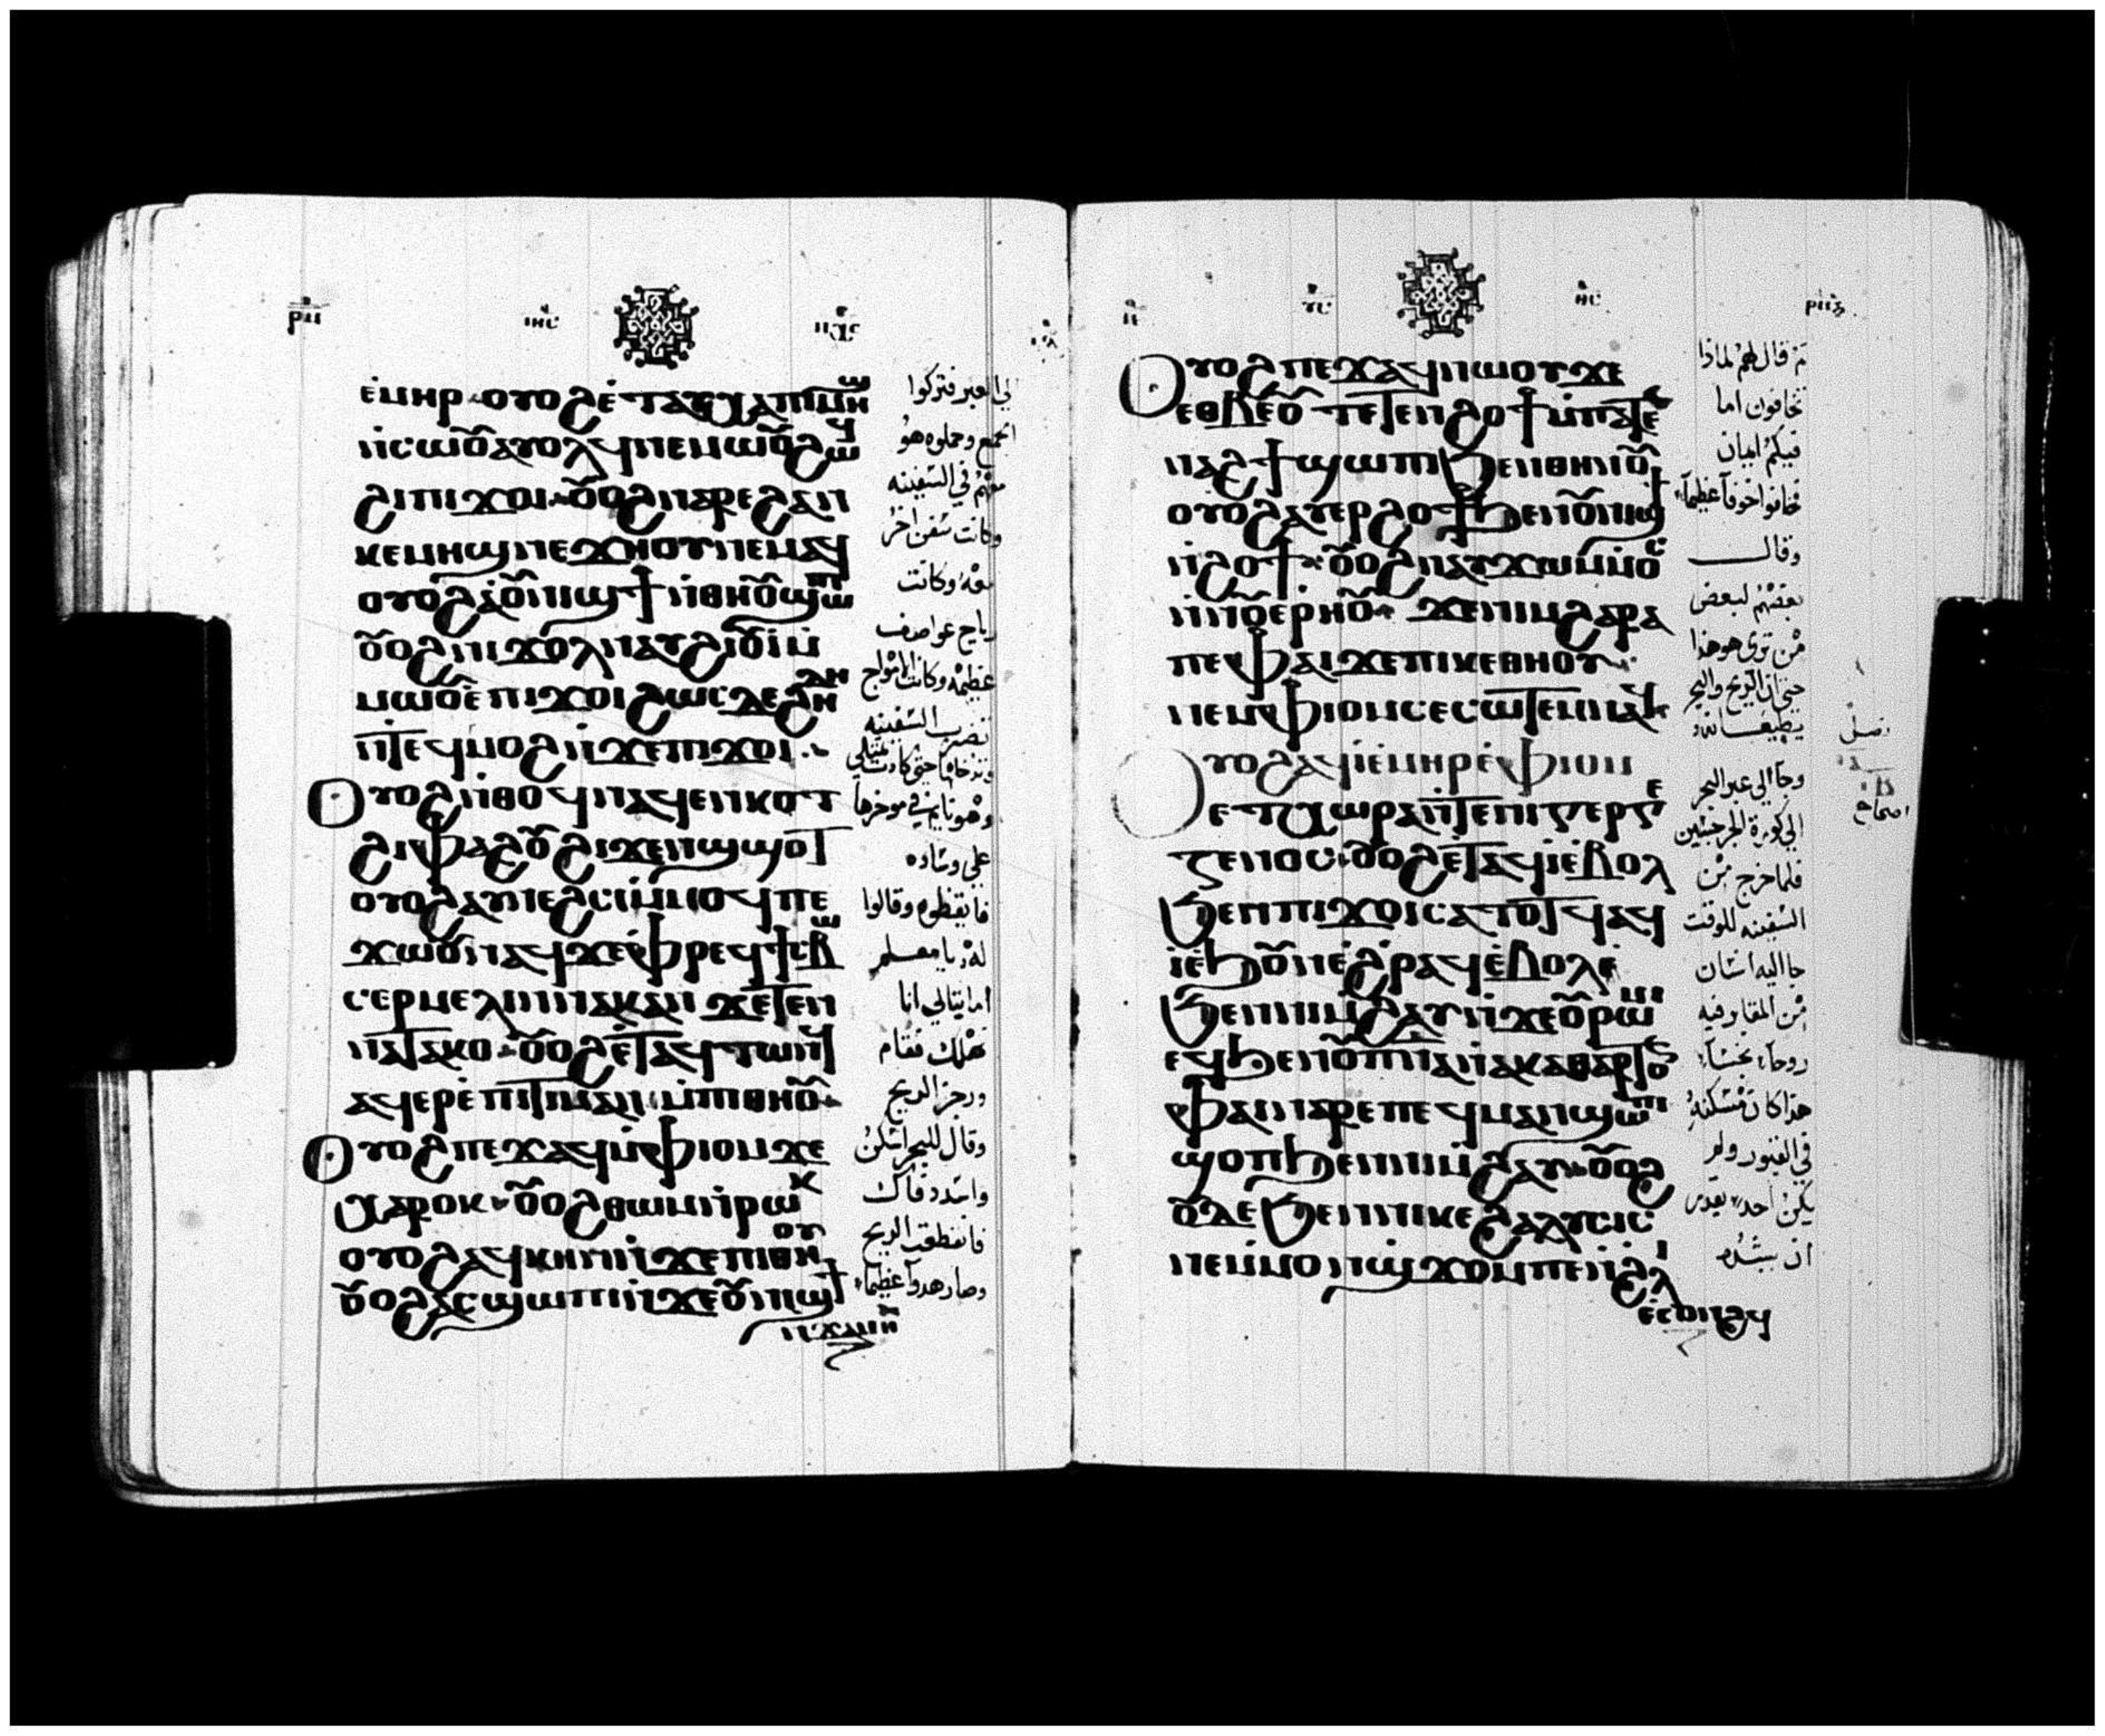 ⲣⲛ ⲓⲏⲥ ⲡⲭⲥ
ⲉ̀ⲙⲏⲣ ⲟⲩⲟϩ ⲉ̀ⲧⲁⲩⲭⲁⲡⲓⲙⲏϣ
ⲛ̀ⲥⲱⲟⲩ ⲁⲩⲟⲗϥ ⲛⲉⲙⲱⲟⲩ ϩⲱϥ
ϩⲓⲡⲓϫⲟⲓ ⲟⲩⲟϩ ⲛⲁⲣⲉϩⲁⲛ
ⲕⲉⲙⲏϣ ⲛⲉϫⲏⲟⲩ ⲛⲉⲙⲁϥ
ⲟⲩⲟϩ ⲁⲟⲩⲛⲓϣϯ ⲛ̀ⲑⲏⲟⲩ ϣⲱⲡⲓ
ⲟⲩⲟϩ ⲛⲓϫⲟⲗ ⲛⲁⲩϩⲓⲟⲩⲓ̀ ⲙ̀
ⲙⲱⲟⲩ ⲉ̀ⲡⲓϫⲟⲓ ϩⲱⲥⲇⲉ ϩⲏⲇⲏ
ⲛ̀ⲧⲉϥⲙⲟϩ ⲛ̀ϫⲉⲡⲓϫⲟⲓ
ⲟⲩⲟϩ ⲛ̀ⲑⲟϥ ⲛⲁϥⲉⲛⲕⲟⲧ
ϩⲓⲫⲁϩⲟⲩ ϩⲓϫⲉⲛϣϣⲟⲧ
ⲟⲩⲟϩ ⲁⲩⲛⲉϩⲥⲓ ⲙ̀ⲙⲟϥ ⲡⲉ
ϫⲱⲟⲩ ⲛⲁϥ ϫⲉⲫⲣⲉϥϯⲥⲃⲱ
ⲥⲉⲣⲙⲉⲗⲓⲛ ⲛⲁⲕ ⲁⲛ ϫⲉⲧⲉⲛ
ⲛⲁⲧⲁⲕⲟ ⲟⲩⲟϩ ⲉ̀ⲧⲁϥⲧⲱⲛϥ
ⲁϥⲉⲣⲉ̀ⲡⲓⲧⲓⲙⲁⲛ ⲙ̀ⲡⲓⲑⲏⲟⲩ
ⲟⲩⲟϩ ⲡⲉϫⲁϥ ⲙ̀ⲫⲓⲟⲙ ϫⲉ
ⲭⲁⲣⲟⲕ ⲟⲩⲟϩ ⲑⲱⲙ ⲛ̀ⲣⲱⲕ
ⲟⲩⲟϩ ⲁϥⲕⲏⲛ ⲛ̀ϫⲉⲡⲓⲑⲏⲟⲩ
ⲟⲩⲟϩ ⲁⲥϣⲱⲡⲓ ⲛ̀ϫⲉⲟⲩⲛⲓϣϯ
ⲛ̀ϫⲁⲙⲏ
الي العبر فتركوا
الجمع وحملوه هو
معهم في السفينه
وكانت سفن اخر
معه وكانت
رياح عواصف
عظيمه وكانت الامواج
تضرب السفينه
وتدخلها حتى كادت تمتلي
وهو نايم في موخرها
على وساده
فايقظوه وقالوا
له يا معلم
اما يتالي انا
نهلك فقام
وزجر الريح
وقال للبحر اسكن
واسدد فاك
فانقطعت الريح
وصار هدوآ عظيمآ
ⲩⲥ ⲑⲥ
ⲟⲩⲟϩ ⲡⲉϫⲁϥ ⲛⲱⲟⲩ ϫⲉ
ⲉⲑⲃⲉⲟⲩ ⲧⲉⲧⲉⲛϩⲟϯ ⲙ̀ⲡⲁⲧⲉ
ⲛⲁϩϯ ϣⲱⲡⲓ ϧⲉⲛⲑⲏⲛⲟⲩ
ⲟⲩⲟϩ ⲁⲩⲉⲣϩⲟϯ ϧⲉⲛⲟⲩⲛⲓϣϯ
ⲛ̀ϩⲟϯ ⲟⲩⲟϩ ⲛⲁⲩϫⲱ ⲙ̀ⲙⲟⲥ
ⲛ̀ⲛⲟⲩⲉⲣⲏⲟⲩ ϫⲉⲛⲓⲙ ϩⲁⲣⲁ
ⲡⲉ ⲫⲁⲓ ϫⲉⲡⲓⲕⲉⲑⲏⲟⲩ
ⲛⲉⲙ ⲫⲓⲟⲙ ⲥⲉⲥⲱⲧⲉⲙ ⲛⲁϥ
ⲟⲩⲟϩ ⲁϥⲓ̀ ⲉ̀ⲙⲏⲣ ⲉ̀ⲫⲓⲟⲙ
ⲉ̀ⲧⲭⲱⲣⲁ ⲛ̀ⲧⲉⲛⲓⲅⲉⲣⲅⲉ
ⲥⲉⲛⲟⲥ ⲟⲩⲟϩ ⲉ̀ⲧⲁϥⲓ̀ ⲉ̀ⲃⲟⲗ
ϧⲉⲛⲡⲓϫⲟⲓ ⲥⲁⲧⲟⲧϥ ⲁϥ
ⲓ̀ ⲉ̀ϧⲟⲩⲛ ⲉ̀ϩⲣⲁϥ ⲉ̀ⲃⲟⲗ
ϧⲉⲛⲛⲓⲙ̀ϩⲁⲩ ⲛ̀ϫⲉⲟⲩⲣⲱⲙⲓ
ⲉϥϧⲉⲛⲟⲩⲡⲛⲁ ⲛ̀ⲁⲕⲁⲑⲁⲣⲧⲟⲛ
ⲫⲁⲓ ⲛⲁⲣⲉⲡⲉϥⲙⲁⲛϣⲱⲡⲓ
ϣⲟⲡ ϧⲉⲛⲛⲓⲙ̀ϩⲁⲩ ⲟⲩⲟϩ
ⲟⲩⲇⲉ ϧⲉⲛⲛⲓⲕⲉϩⲁⲗⲩⲥⲓⲥ
ⲛⲉⲙ̀ⲙⲟⲛ ϣϫⲟⲙ ⲡⲉ ⲛ̀ϩⲗⲓ
ⲉ̀ⲥⲟⲛϩϥ
ثم قال لهم لماذا
تخافون اما
فيكم ايمان
فخافوا خوفآ عظيمآ
وقال
بعضهم لبعض
من ترى هو هذا
حتى ان الريح والبحر
يطيعانه
وجآ الي عبر البحر
الى كورة الجرجسين
فلما خرج من
السفينه للوقت
جا اليه انسان
من المقابر فيه
روحآ نجسآ
هذا كان مسكنه
في القبور ولم
يكن احد يقدر
ان يشده
فصل
اصحاح